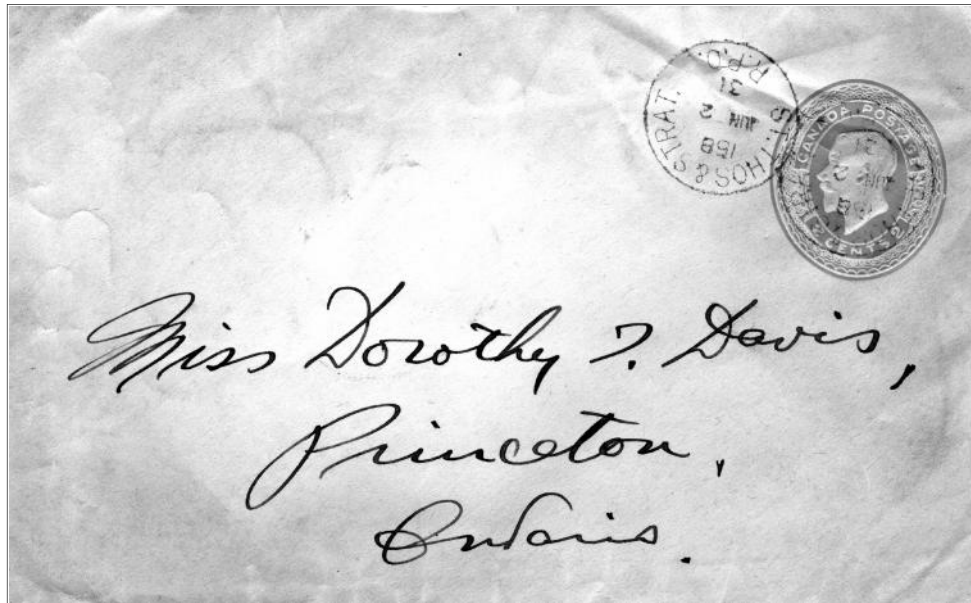 ST. THOS & STRAT.
R.P.O.
158
JUN 2
31
CANADA POSTAGE
2 CENTS 2
158
JUN 2
31
Miss Dorothy T. Davis,
Princeton,
Ontario.